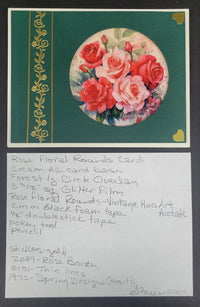 Rose Floral Rounds Card
Cream A2 card base
Forest by Circle Overlay
3 7/8" sq Glitter Film
Rose Floral Rounds-Vintage Acetate
2mm Black foam tape
1/8" doublestick tape
pokey tool
Pencil
Stickers-gold
2089-Rose Border
Thin lines
Spring Designs (Hearts)
2024